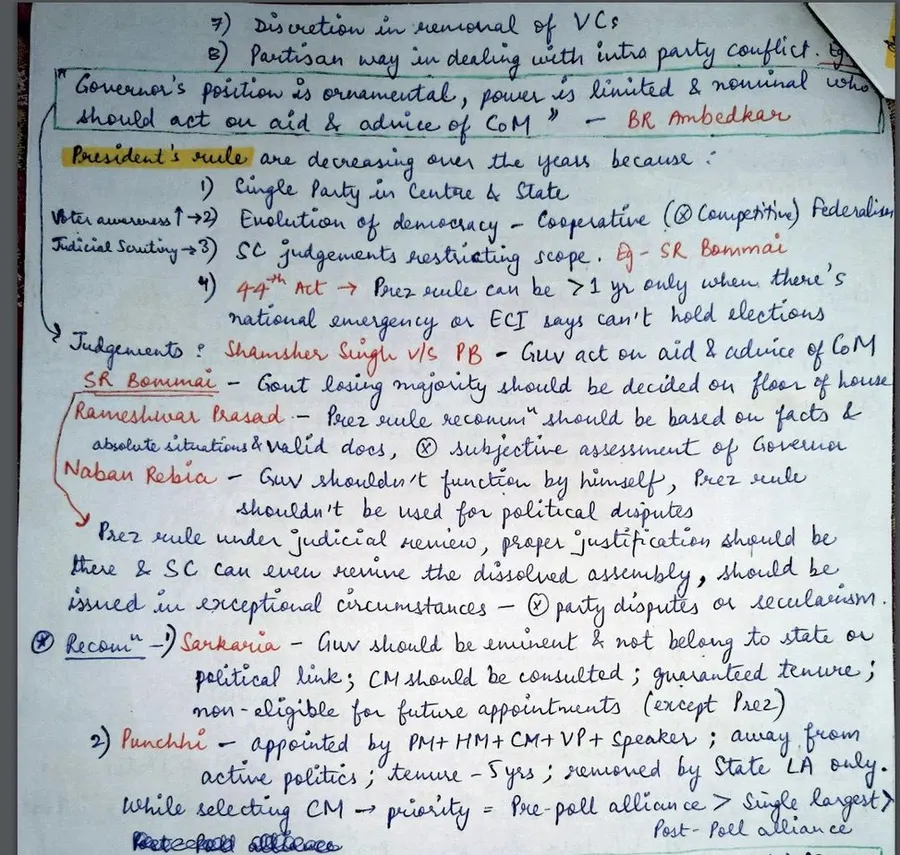 7) Discretion in removal of VCs
8) Partisan way in dealing with intra party conflict. Eg
"Governor's position is ornamental, power is limited & nominal who
should act on aid & advice of CoM" - BR Ambedkar
President's rule are decreasing over the years because :
1) Single Party in Centre & State
Voter awareness ↑ → 2) Evolution of democracy - Cooperative (⊗ Competitive) Federalism
Judicial Scrutiny → 3) SC judgements restricting scope. Eg - SR Bommai
4) 44th Act → Prez rule can be >1 yr only when there's
national emergency or ECI says can't hold elections
Judgements : Shamsher Singh v/s PB - Guv act on aid & advice of CoM
SR Bommai - Govt losing majority should be decided on floor of house
Rameshwar Prasad - Prez rule recommn should be based on facts &
absolute situations & valid docs, ⊗ subjective assessment of Governor
Naban Rebia - Guv shouldn't function by himself, Prez rule
shouldn't be used for political disputes
Prez rule under judicial review, proper justification should be
there & SC can even revive the dissolved assembly, should be
issued in exceptional circumstances - ⊗ party disputes or secularism.
⊛ Recomn - 1) Sarkaria - Guv should be eminent & not belong to state or
political link; CM should be consulted ; guaranteed tenure ;
non-eligible for future appointments (except Prez)
2) Punchhi - appointed by PM+HM+CM+VP+Speaker ; away from
active politics ; tenure - 5yrs ; removed by State LA only.
While selecting CM → priority = Pre-poll alliance > Single largest >
Post-Poll alliance